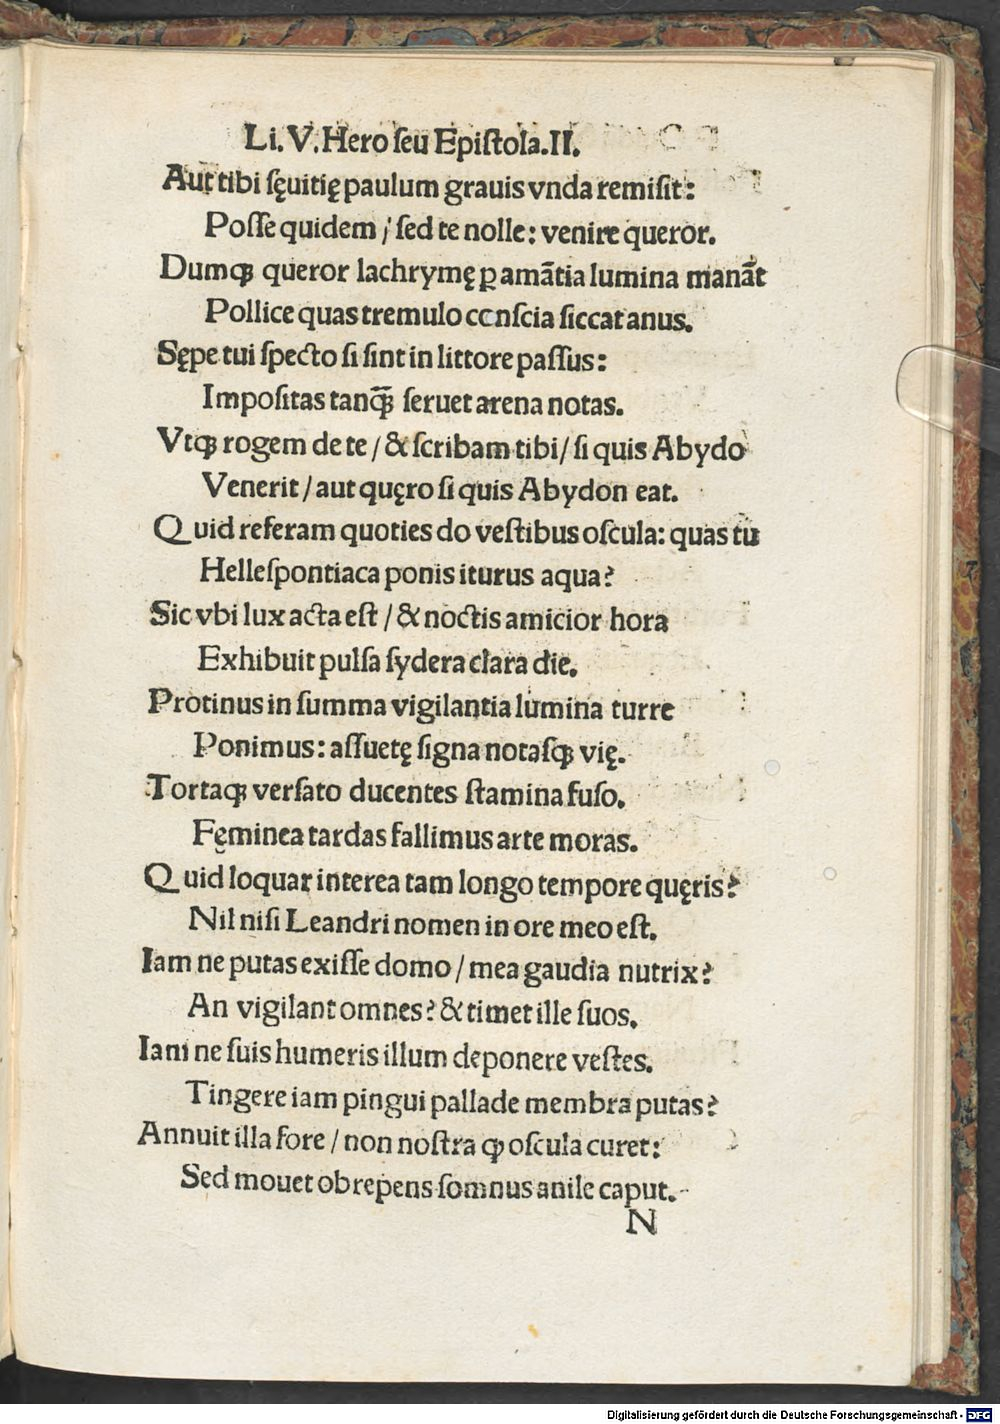 Li. V. Hero ſeu Epiſtola. II.
Aut tibi ſęuitię paulum grauis vnda remiſit:
Poſſe quidem / ſed te nolle: venire queror.
Dumꝙ queror lachrymę ꝑ amãtia lumina manãt
Pollice quas tremulo conſcia ſiccat anus.
Sępe tui ſpecto ſi ſint in littore paſſus:
Impoſitas tanꝙ̃ ſeruet arena notas.
Vtꝙ rogem de te / & ſcribam tibi / ſi quis Abydo
Venerit / aut quęro ſi quis Abydon eat.
Quid referam quoties do veſtibus oſcula: quas tu
Helleſpontiaca ponis iturus aqua?
Sic vbi lux acta eſt / & noctis amicior hora
Exhibuit pulſa ſydera clara die.
Protinus in ſumma vigilantia lumina turre
Ponimus: aſſuetę ſigna notaſꝙ vię.
Tortaꝙ verſato ducentes ſtamina fuſo.
Fęminea tardas fallimus arte moras.
Quid loquar interea tam longo tempore quęris?
Nil niſi Leandri nomen in ore meo eſt.
Iam ne putas exiſſe domo / mea gaudia nutrix?
An vigilant omnes? & timet ille ſuos.
Iam ne ſuis humeris illum deponere veſtes.
Tingere iam pingui pallade membra putas?
Annuit illa fore / non noſtra ꝙ oſcula curet:
Sed mouet obrepens ſomnus anile caput.
N
Digitalisierung gefördert durch die Deutsche Forschungsgemeinschaft - DFG